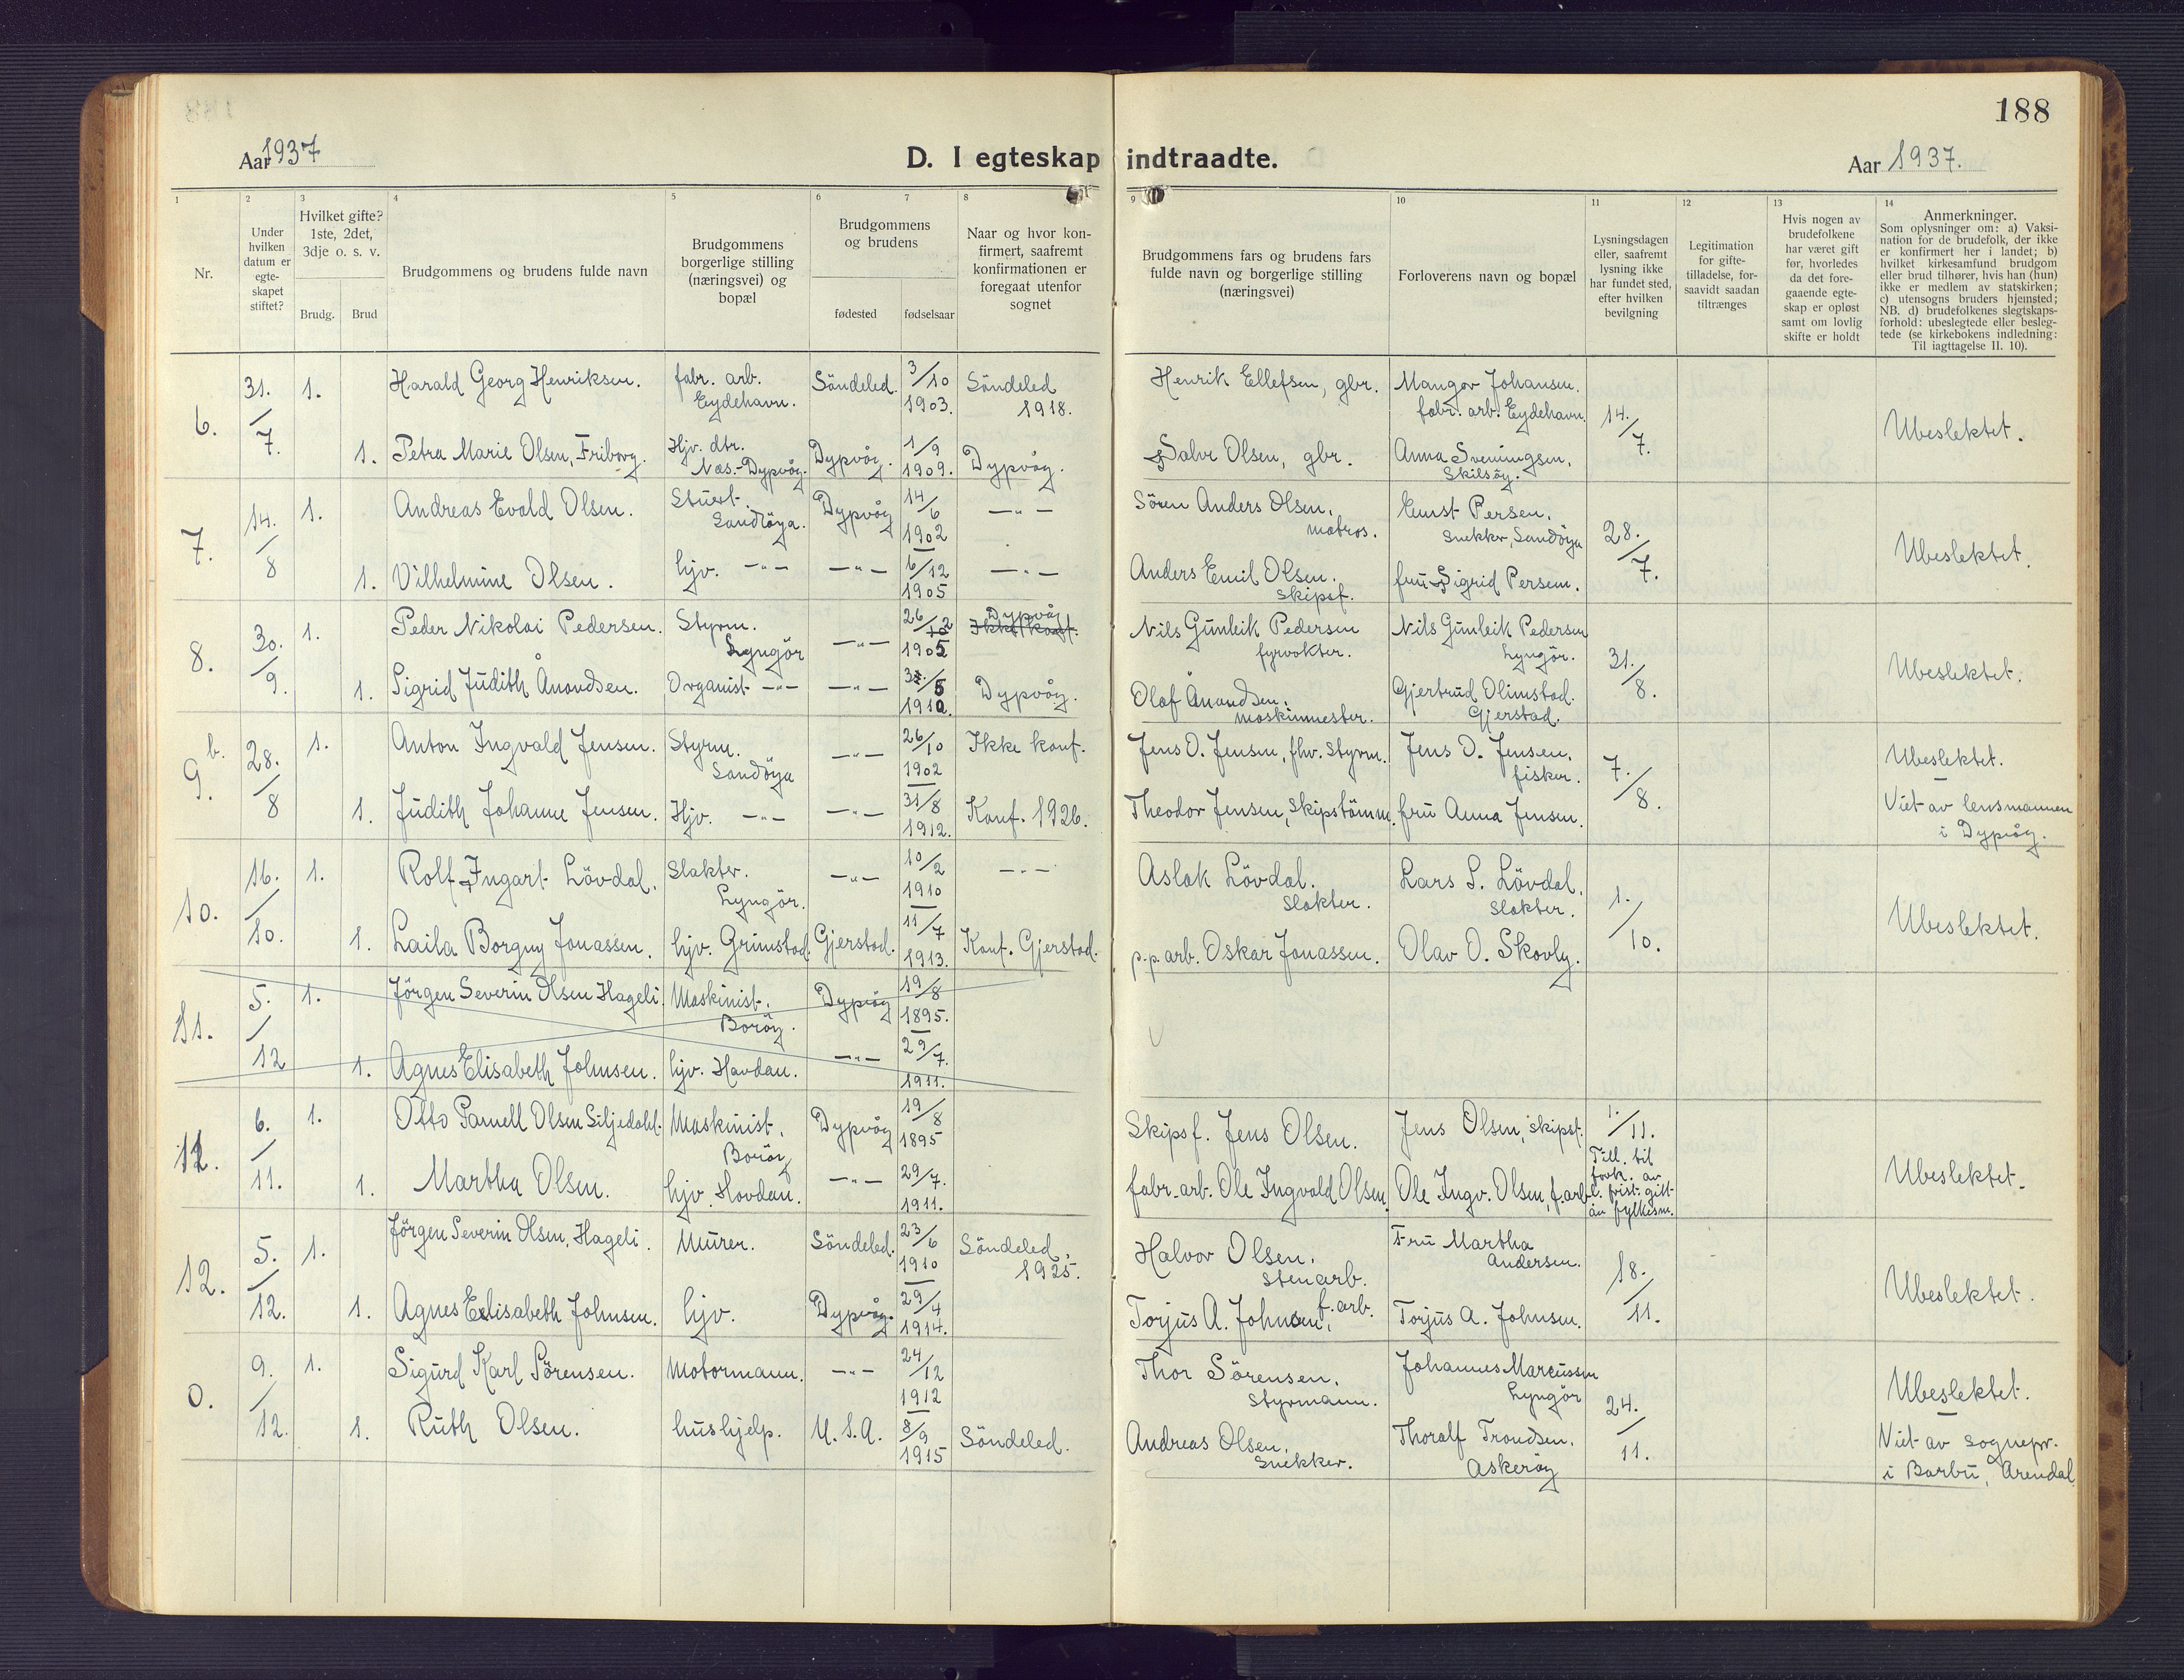 188
Aar 1937
D. I egteskap indtraadte.
Aar 1937.
1
2
3
4
5
6
7
8
9
10
11
12
13
14
Nr.
Under
hvilken
datum er
egte-
skapet
stiftet?
Hvilket gifte?
1ste, 2det,
3dje o. s. v.
Brudg.
Brud
Brudgommens og brudens fulde navn
Brudgommens
borgerlige stilling
(næringsvei) og
bopæl
Brudgommens
og brudens
fødested
fødselsaar
Naar og hvor kon-
firmert, saafremt
konfirmationen er
foregaat utenfor
sognet
Brudgommens fars og brudens fars
fulde navn og borgerlige stilling
(næringsvei)
Forloverens navn og bopæl
Lysningsdagen
eller, saafremt
lysning ikke
har fundet sted,
efter hvilken
bevilgning
Legitimation
for gifte-
tilladelse, for-
saavidt saadan
tiltrænges
Hvis nogen av
brudefolkene
har været gift
før, hvorledes
da det fore-
gaaende egte-
skap er opløst
samt om lovlig
skifte er holdt
Anmerkninger.
Som oplysninger om: a) Vaksi-
nation for de brudefolk, der ikke
er konfirmert her i landet; b)
hvilket kirkesamfund brudgom
eller brud tilhører, hvis han (hun)
ikke er medlem av statskirken;
c) utensogns bruders hjemsted;
NB. d) brudefolkenes slegtskaps-
forhold: ubeslegtede eller besleg-
tede (se kirkebokens indledning:
Til iagttagelse II. 10).
6. 31./7. 1. Harald Georg Henriksen. fabr. arb. Eydehavn. Söndeled. 3/10 1903. Söndeled 1918. Henrik Ellefsen, gbr. Mangor Johansen. fabr. arb. Eydehavn. 14./7. Ubeslektet.
1. Petra Marie Olsen, Friborg. Hjv. dtr. Næs.-Dypvåg. Dypvåg. 1/9 1909. Dypvåg. Salve Olsen, gbr. Anna Sveningsen, Skilsöy.
7. 14./8 1. Andreas Evald Olsen. Stuert. Sandöya. Dypvåg 14/6 1902 —"— Sören Anders Olsen, matros. Ernst Persen, Snekker, Sandöya 28./7. Ubeslektet.
1. Vilhelmine Olsen. hjv. —"— —"— 6/12 1905 —"— Anders Emil Olsen. skipsf. fru Sigrid Persen.
8. 30./9. 1. Peder Nikolai Pedersen. Styrm. Lyngör —"— 26/2 1905 Dypvåg Ikke konf. Nils Gunleik Pedersen fyrvokter. Nils Gunleik Pedersen Lyngör. 31./8. Ubeslektet.
1. Sigrid Judith Ånondsen. Organist —"— —"— 1910. Dypvåg. Olaf Ånondsen, maskinmester. Gjertrud Olimstad. Gjerstad.
9.b. 28./8 1. Anton Ingvald Jensen. Styrm. Sandöya —"— 26/10 1902 Ikke konf. Jens O. Jensen, fhv. Styrm. Jens O. Jensen, fisker. 7./8. Ubeslektet.
1. Judith Johanne Jensen. Hjv. —"— —"— 31/8 1912. Konf. 1926. Theodor Jensen, Skipstömm. fru Anna Jensen. Viet av lensmannen i Dypvåg.
10. 16./10. 1. Rolf Ingart Lövdal. Slakter. Lyngör. —"— 10/2 1910 —"— Aslak Lövdal. Slakter. Lars S. Lövdal. Slakter. 1./10. Ubeslektet.
1. Laila Borgny Jonassen. hjv. Grimstad. Gjerstad. 11/7 1913. Konf. Gjerstad. p.p. arb. Oskar Jonassen. Olav O. Skovly.
11. 5./12 1. Jörgen Severin Olsen Hageli. Maskinist. Boröy. Dypvåg 19/8 1895.
1. Agnes Elisabeth Johnsen. hjv. Havdan. —"— 29/7. 1911.
11. 6./11. 1. Otto Parnell Olsen Siljedahl. Maskinist. Boröy Dypvåg 19/8 1895 Skipsf. Jens Olsen. Jens Olsen, skipst. 1./11. Ubeslektet.
1. Martha Olsen. hjv. Hovdan. —"— 29/7. 1911. fabr. arb. Ole Ingvald Olsen. Ole Ingv. Olsen, f. arb. Till. til fork. av l. frist. gitt av fylkesm.
12. 5./12. 1. Jörgen Severin Olsen, Hageli. Murer. Söndeled. 23/6 1910 Söndeled, 1925. Halvor Olsen. stenarb. Fru Martha Andersen. 18./11. Ubeslektet.
1. Agnes Elisabeth Johnsen. hjv. Dypvåg. 29/4 1914. Torjus A. Johnsen, f. arb. Torjus A. Johnsen.
0. 9./12. 1. Sigurd Karl Sörensen. Motormann. —"— 24/12 1912 Thor Sörensen. Styrmann. Johannes Marcussen Lyngör 24./11. Ubeslektet.
1. Ruth Olsen. hushjelp. U.S.A. 8/9 1915 Söndeled. Andreas Olsen. Snekker. Thoralf Trondsen. Askeröy Viet av sognepr. i Barbu, Arendal.